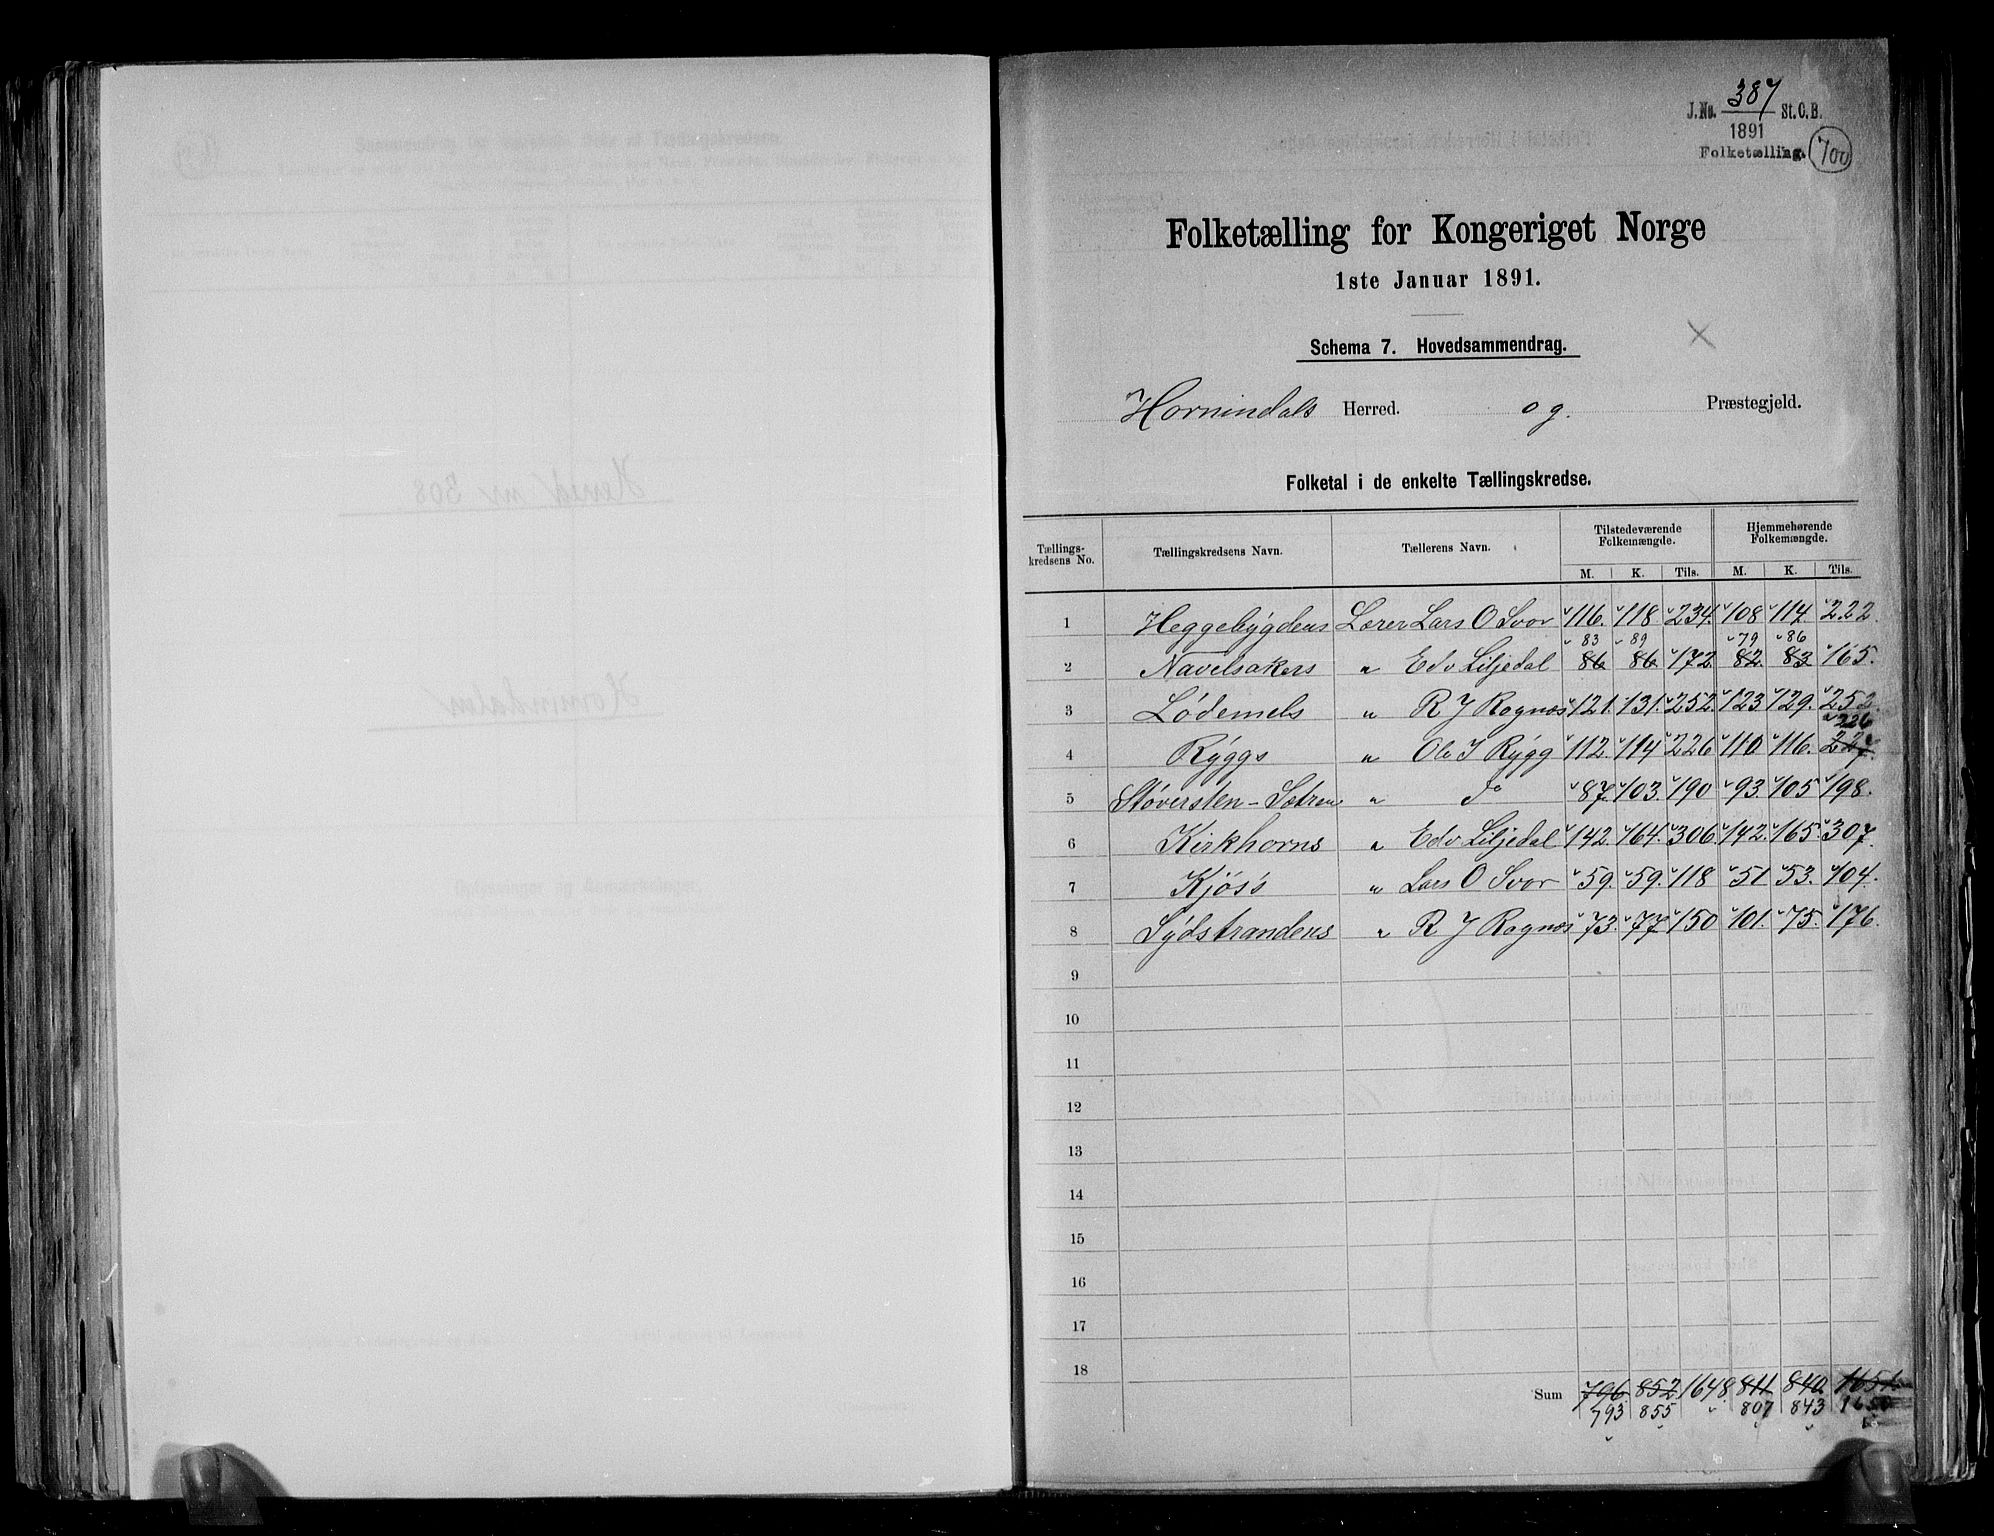 J.No. 387 St.C.B.
1891
Folketælling. 700
Folketælling for Kongeriget Norge
1ste Januar 1891.
Schema 7. Hovedsammendrag.
Hornindals Herred. og. Præstegjeld.
Folketal i de enkelte Tællingskredse.
Tællings-kredsens No. Tællingskredsens Navn. Tællerens Navn. Tilstedeværende Folkemængde. Hjemmehørende Folkemængde.
M. K. Tils. M. K. Tils.
1 Heggebygdens Lærer Lars O Svor 116. 118 234. 108 114. 222.
83 89 79 86
2 Navelsakers " Edv Liljedal 86 86 172 82 83 165.
3 Lødemels " R J Rognæs 121. 131. 252. 123 129. 252.
226
4 Ryggs " Ole J Rygg 112. 114 226 110. 116. 227.
5 Støversten-Sætren " do 87. 103. 190 93. 105 198.
6 Kirkhorns " Edv Liljedal 142. 164. 306 142. 165. 307.
7 Kjøs's " Lars O Svor 59. 59. 118 51 53. 104.
8 Sydstrandens " R J Rognæs 73. 77 150 101. 75. 176.
9
10
11
12
13
14
15
16
17
18
Sum 796. 852 1648 811 840. 1651.
793 855 807 843 1650